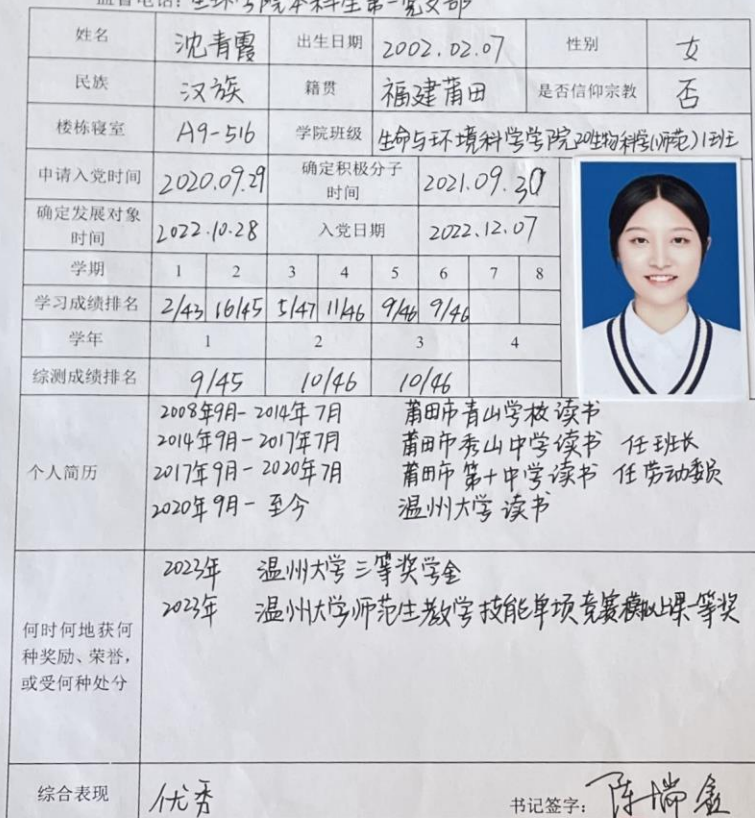 监督电话：生环学院本科生第一党支部
姓名 沈青霞 出生日期 2002.02.07 性别 女
民族 汉族 籍贯 福建莆田 是否信仰宗教 否
楼栋寝室 A9-516 学院班级 生命与环境科学学院20生物科学(师范)1班
申请入党时间 2020.09.29 确定积极分子时间 2021.09.30
确定发展对象时间 2022.10.28 入党日期 2022.12.07
学期 1 2 3 4 5 6 7 8
学习成绩排名 2/43 16/45 5/47 11/46 9/46 9/46
学年 1 2 3 4
综测成绩排名 9/45 10/46 10/46
个人简历
2008年9月-2014年7月 莆田市青山学校读书
2014年9月-2017年7月 莆田市秀山中学读书 任班长
2017年9月-2020年7月 莆田市第十中学读书 任劳动委员
2020年9月-至今 温州大学读书
何时何地获何种奖励、荣誉，或受何种处分
2023年 温州大学三等奖学金
2023年 温州大学师范生教学技能单项竞赛模拟上课一等奖
综合表现 优秀 书记签字：陈瑞